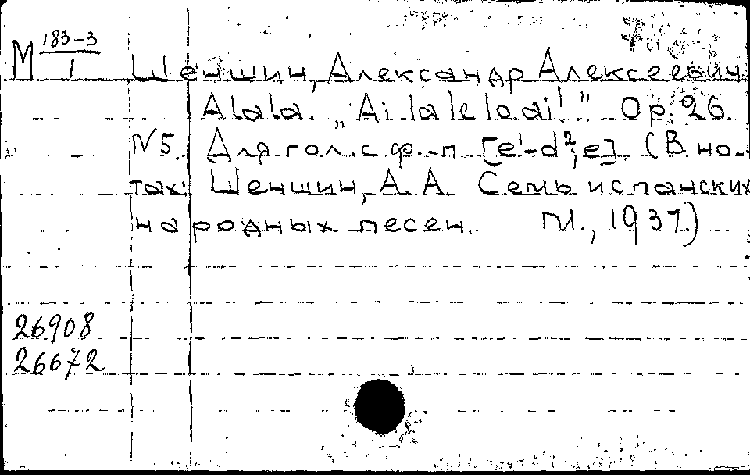 М 183-3/1
Шеншин, Александр Алексеевич
Alala. „Ai lalelo ai!" Op. 26.
N5. Для гол. с ф.-п. [e¹-d²; e]. (В но-
тах: Шеншин, А. А. Семь испанских
народных песен. М., 1937.)
26908
26672